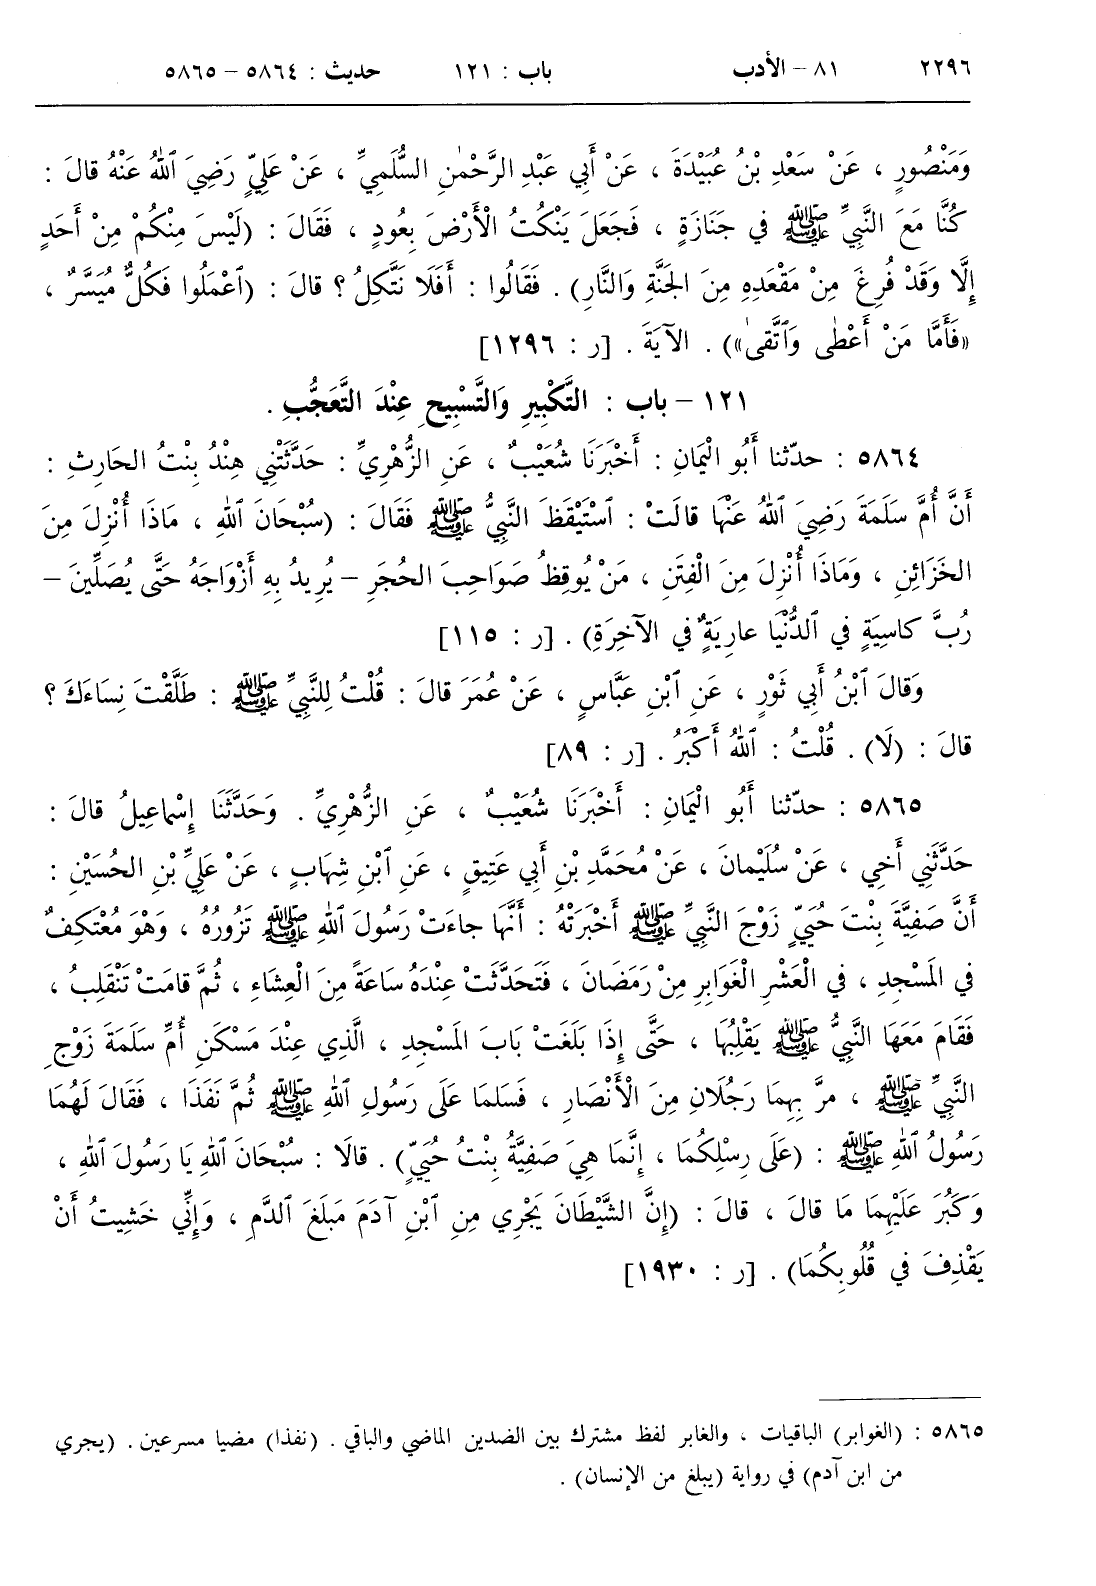 ٢٢٩٦ ٨١ – الأدب باب : ١٢١ حديث : ٥٨٦٤ – ٥٨٦٥
وَمَنْصُورٍ ، عَنْ سَعْدِ بْنُ عُبَيْدَةَ ، عَنْ أَبِي عَبْدِ الرَّحْمٰنِ السُّلَمِيِّ ، عَنْ عَلِيٍّ رَضِيَ ٱللهُ عَنْهُ قالَ :
كُنَّا مَعَ النَّبِيِّ ﷺ في جَنَازَةٍ ، فَجَعَلَ يَنْكُتُ الْأَرْضَ بِعُودٍ ، فَقَالَ : (لَيْسَ مِنْكُمْ مِنْ أَحَدٍ
إِلَّا وَقَدْ فُرِغَ مِنْ مَقْعَدِهِ مِنَ الجَنَّةِ وَالنَّارِ) . فَقَالُوا : أَفَلَا نَتَّكِلُ ؟ قالَ : (ٱعْمَلُوا فَكُلٌّ مُيَسَّرٌ ،
«فَأَمَّا مَنْ أَعْطٰى وَٱتَّقىٰ») . الآيَةَ . [ر : ١٢٩٦]
١٢١ – باب : التَّكْبِيرِ وَالتَّسْبِيحِ عِنْدَ التَّعَجُّبِ .
٥٨٦٤ : حدّثنا أَبُو الْيَمانِ : أَخْبَرَنَا شُعَيْبٌ ، عَنِ الزُّهْرِيِّ : حَدَّثَتْنِي هِنْدُ بِنْتُ الحَارِثِ :
أَنَّ أُمَّ سَلَمَةَ رَضِيَ ٱللهُ عَنْهَا قالَتْ : ٱسْتَيْقَظَ النَّبِيُّ ﷺ فَقَالَ : (سُبْحَانَ ٱللهِ ، مَاذَا أُنْزِلَ مِنَ
الخَزَائِنِ ، وَمَاذَا أُنْزِلَ مِنَ الْفِتَنِ ، مَنْ يُوقِظُ صَوَاحِبَ الحُجَرِ – يُرِيدُ بِهِ أَزْوَاجَهُ حَتَّى يُصَلِّينَ –
رُبَّ كاسِيَةٍ في ٱلدُّنْيَا عارِيَةٌ في الآخِرَةِ) . [ر : ١١٥]
وَقالَ ٱبْنُ أَبِي ثَوْرٍ ، عَنِ ٱبْنِ عَبَّاسٍ ، عَنْ عُمَرَ قالَ : قُلْتُ لِلنَّبِيِّ ﷺ : طَلَّقْتَ نِسَاءَكَ ؟
قالَ : (لَا) . قُلْتُ : ٱللهُ أَكْبَرُ . [ر : ٨٩]
٥٨٦٥ : حدّثنا أَبُو الْيَمانِ : أَخْبَرَنَا شُعَيْبٌ ، عَنِ الزُّهْرِيِّ . وَحَدَّثَنَا إِسْماعِيلُ قالَ :
حَدَّثَنِي أَخِي ، عَنْ سُلَيْمانَ ، عَنْ مُحَمَّدِ بْنِ أَبِي عَتِيقٍ ، عَنِ ٱبْنِ شِهَابٍ ، عَنْ عَلِيِّ بْنِ الحُسَيْنِ :
أَنَّ صَفِيَّةَ بِنْتَ حُيَيٍّ زَوْجَ النَّبِيِّ ﷺ أَخْبَرَتْهُ : أَنَّهَا جاءَتْ رَسُولَ ٱللهِ ﷺ تَزُورُهُ ، وَهْوَ مُعْتَكِفٌ
في المَسْجِدِ ، في الْعَشْرِ الْغَوَابِرِ مِنْ رَمَضَانَ ، فَتَحَدَّثَتْ عِنْدَهُ سَاعَةً مِنَ الْعِشَاءِ ، ثُمَّ قامَتْ تَنْقَلِبُ ،
فَقَامَ مَعَهَا النَّبِيُّ ﷺ يَقْلِبُهَا ، حَتَّى إِذَا بَلَغَتْ بَابَ المَسْجِدِ ، الَّذِي عِنْدَ مَسْكَنِ أُمِّ سَلَمَةَ زَوْجِ
النَّبِيِّ ﷺ ، مَرَّ بِهِمَا رَجُلَانِ مِنَ الْأَنْصَارِ ، فَسَلَّمَا عَلَى رَسُولِ ٱللهِ ﷺ ثُمَّ نَفَذَا ، فَقَالَ لَهُمَا
رَسُولُ ٱللهِ ﷺ : (عَلَى رِسْلِكُمَا ، إِنَّمَا هِيَ صَفِيَّةُ بِنْتُ حُيَيٍّ) . قالَا : سُبْحَانَ ٱللهِ يَا رَسُولَ ٱللهِ ،
وَكَبُرَ عَلَيْهِمَا مَا قالَ ، قالَ : (إِنَّ الشَّيْطَانَ يَجْرِي مِنِ ٱبْنِ آدَمَ مَبلَغَ ٱلدَّمِ ، وَإِنِّي خَشِيتُ أَنْ
يَقْذِفَ في قُلُوبِكُمَا) . [ر : ١٩٣٠]
٥٨٦٥ : (الغوابر) الباقيات ، والغابر لفظ مشترك بين الضدين الماضي والباقي . (نفذا) مضيا مسرعين . (يجري
من ابن آدم) في رواية (يبلغ من الإنسان) .